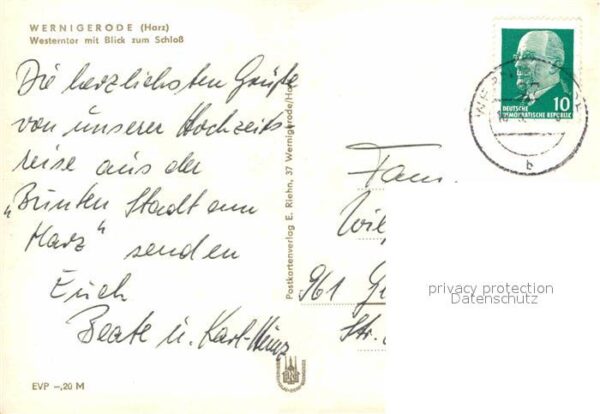 WERNIGERODE (Harz)
Westerntor mit Blick zum Schloß
Die herzlichsten Grüße
von unserer Hochzeits
reise aus der
„Bunten Stadt am
Harz" senden
Euch
Beate u. Karl-Heinz
EVP –,20 M
Postkartenverlag E. Riehn, 37 Wernigerode/Harz
DEUTSCHE
DEMOKRATISCHE REPUBLIK
10
b
Fam.
961
Str.
privacy protection
Datenschutz